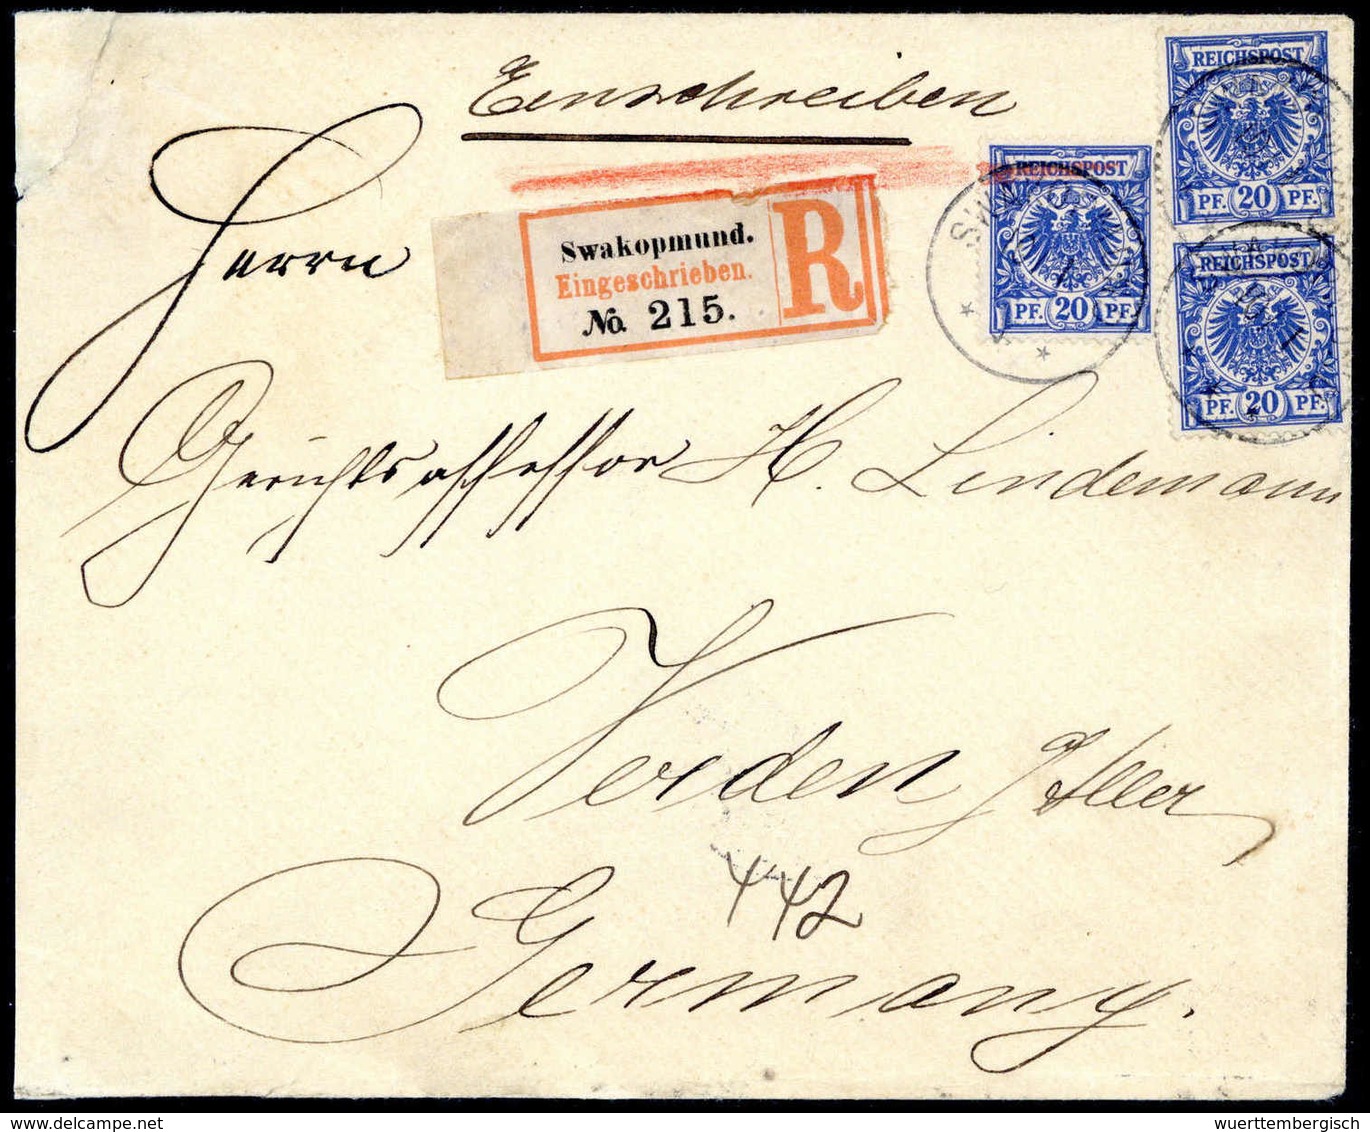 Einschreiben
REICHSPOST
PF. 20 PF.
REICHSPOST
PF. 20 PF.
REICHSPOST
PF. 20 PF.
Swakopmund.
Eingeschrieben.
No. 215.
R
Herrn
Gerichtsassessor H. Lindemann
Verden a/Aller
442
Germany.
wuerttembergisch